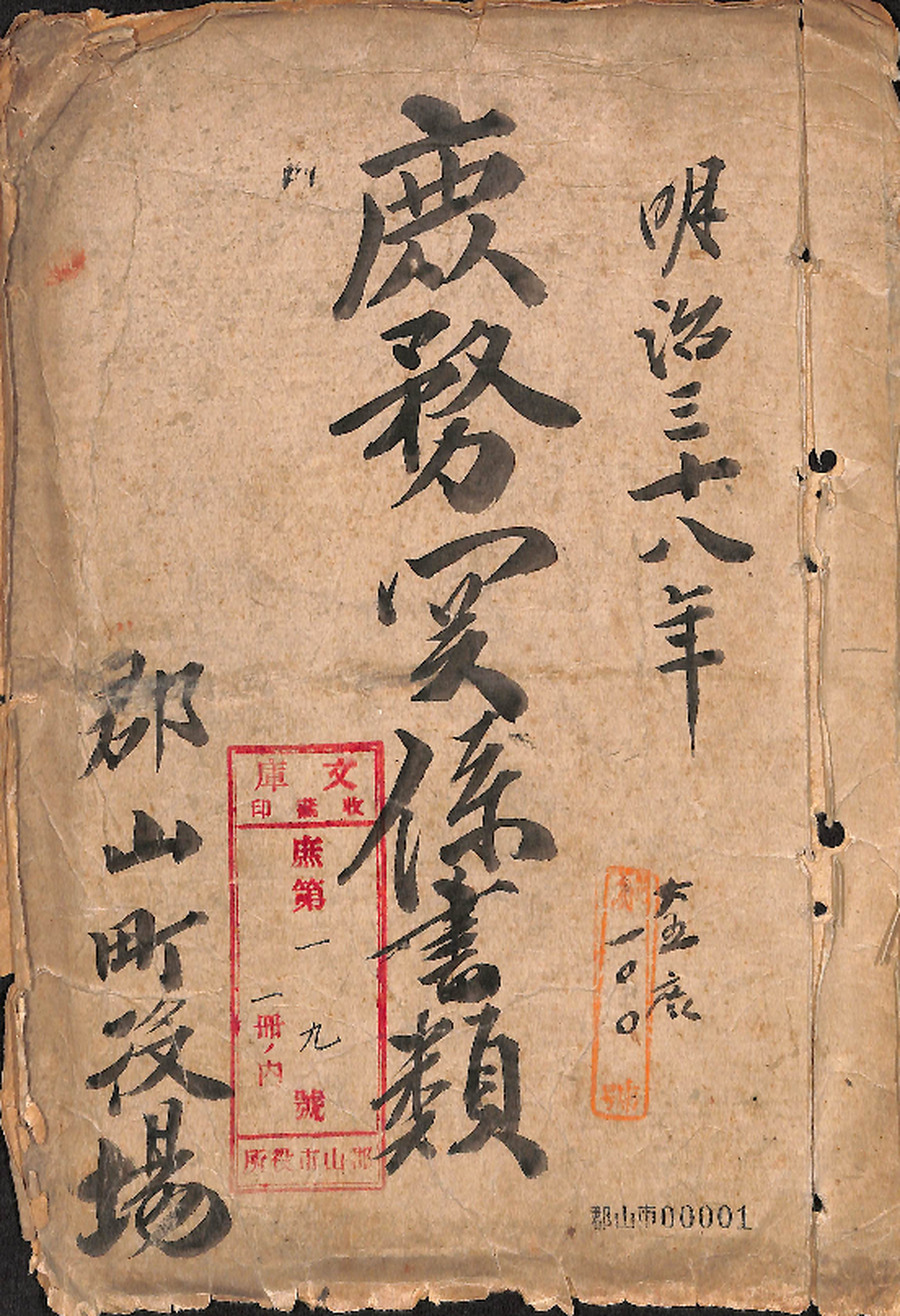 明治三十八年
庶務関係書類
郡山町役場
大五庶
一〇〇
號
文庫
收藏印
庶第一九號
一冊ノ内
郡山市役所
郡山市00001